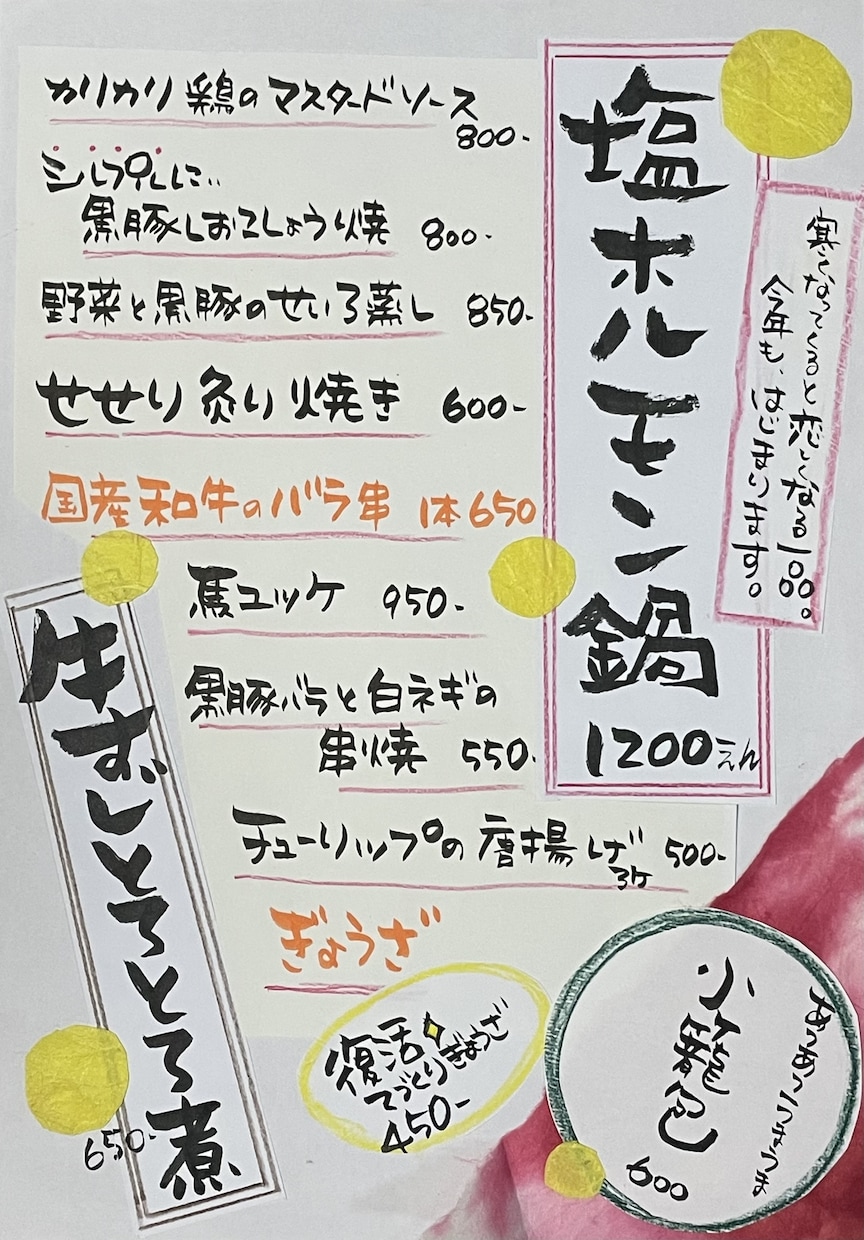 塩ホルモン鍋
1200えん
寒くなってくると恋しくなる
今年も、はじまります。
カリカリ鶏のマスタードソース
800-
シンプルに..
黒豚しおこしょう焼 800-
野菜と黒豚のせいろ蒸し 850-
せせり炙り焼き 600-
国産和牛のバラ串 1本650
馬ユッケ 950-
黒豚バラと白ネギの
串焼 550-
チューリップの唐揚げ 500-
3ケ
ぎょうざ
復活
てづくりぎょうざ
450-
牛すじとろとろ煮
650-
あつあつ うまうま
小籠包
600